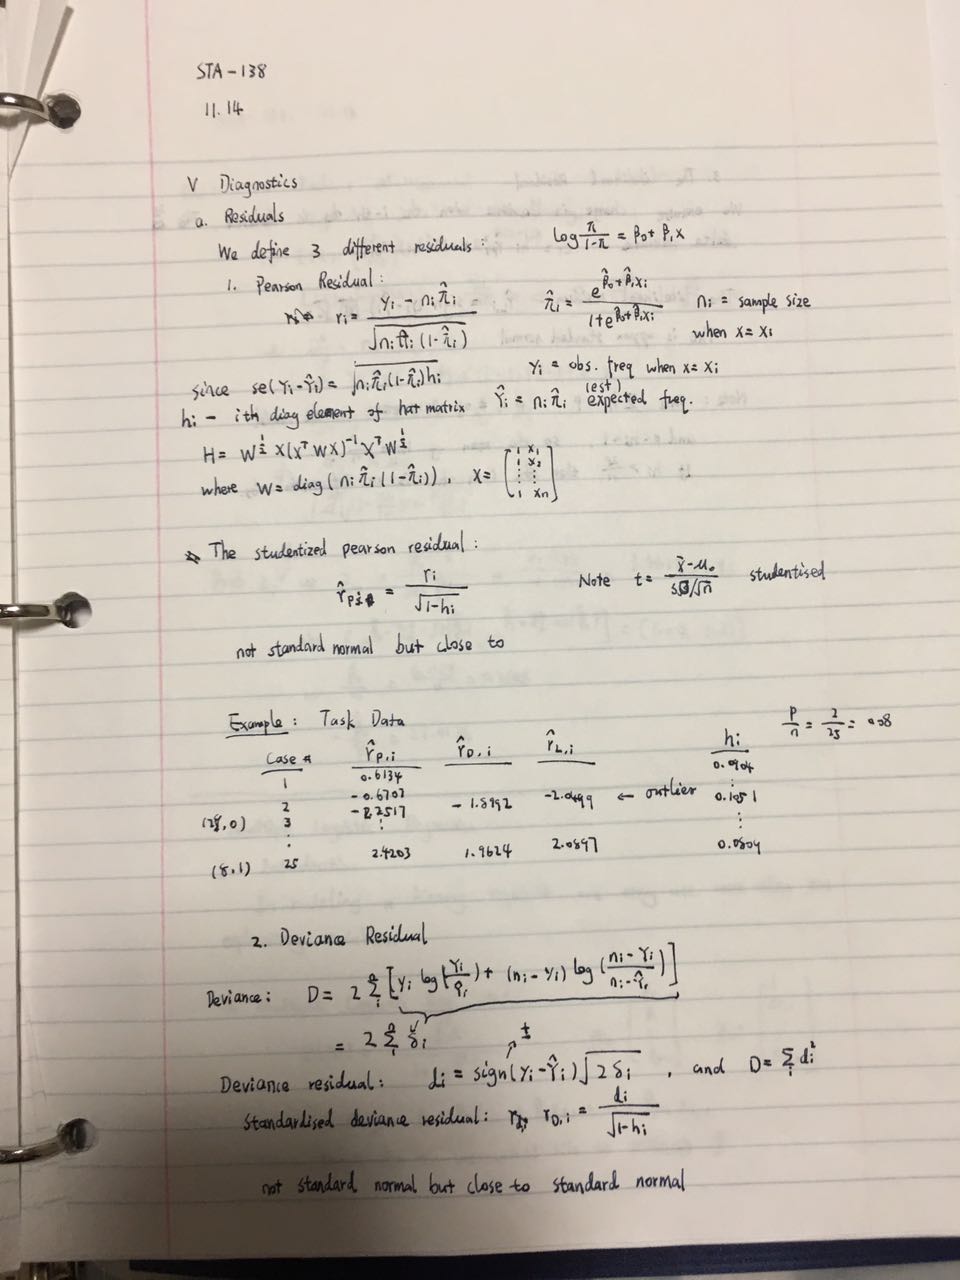 STA-138
11.14
V Diagnostics
a. Residuals
We define 3 different residuals: log π/(1-π) = β₀ + β₁x
1. Pearson Residual:
rᵢ = (yᵢ - nᵢπ̂ᵢ)/√(nᵢπ̂ᵢ(1-π̂ᵢ)) π̂ᵢ = e^(β̂₀+β̂₁xᵢ)/(1+e^(β̂₀+β̂₁xᵢ)) nᵢ = sample size
when x = xᵢ
yᵢ = obs. freq when x = xᵢ
since se(Yᵢ-Ŷᵢ) = √(nᵢπ̂ᵢ(1-π̂ᵢ)hᵢ)
Ŷᵢ = nᵢπ̂ᵢ (est) expected freq.
hᵢ - ith diag element of hat matrix
H = W^½ X(XᵀWX)⁻¹XᵀW^½
where W = diag(nᵢπ̂ᵢ(1-π̂ᵢ)), X = [1 x₁ 1 x₂ ⋮ ⋮ 1 xₙ]
The studentized pearson residual:
r̂pᵢ = rᵢ/√(1-hᵢ) Note t = (x̄-μ₀)/(s/√n) studentised
not standard normal but close to
Example: Task Data P/n = 2/25 = 0.08
Case # r̂P,i r̂D,i r̂L,i hᵢ
1 0.6134 0.0904
2 -0.6703 ⋮
(28,0) 3 -2.2517 -1.8992 -2.0499 ← outlier 0.1051
⋮ ⋮ ⋮
(8,1) 25 2.4203 1.9624 2.0897 0.0804
2. Deviance Residual
Deviance: D = 2 Σᵢⁿ [yᵢ log(Yᵢ/Ŷᵢ) + (nᵢ-yᵢ) log((nᵢ-Yᵢ)/(nᵢ-Ŷᵢ))]
= 2 Σᵢⁿ δᵢ
±
Deviance residual: dᵢ = sign(yᵢ-Ŷᵢ)√(2δᵢ), and D = Σᵢ dᵢ²
Standardised deviance residual: rD,i = dᵢ/√(1-hᵢ)
not standard normal but close to standard normal